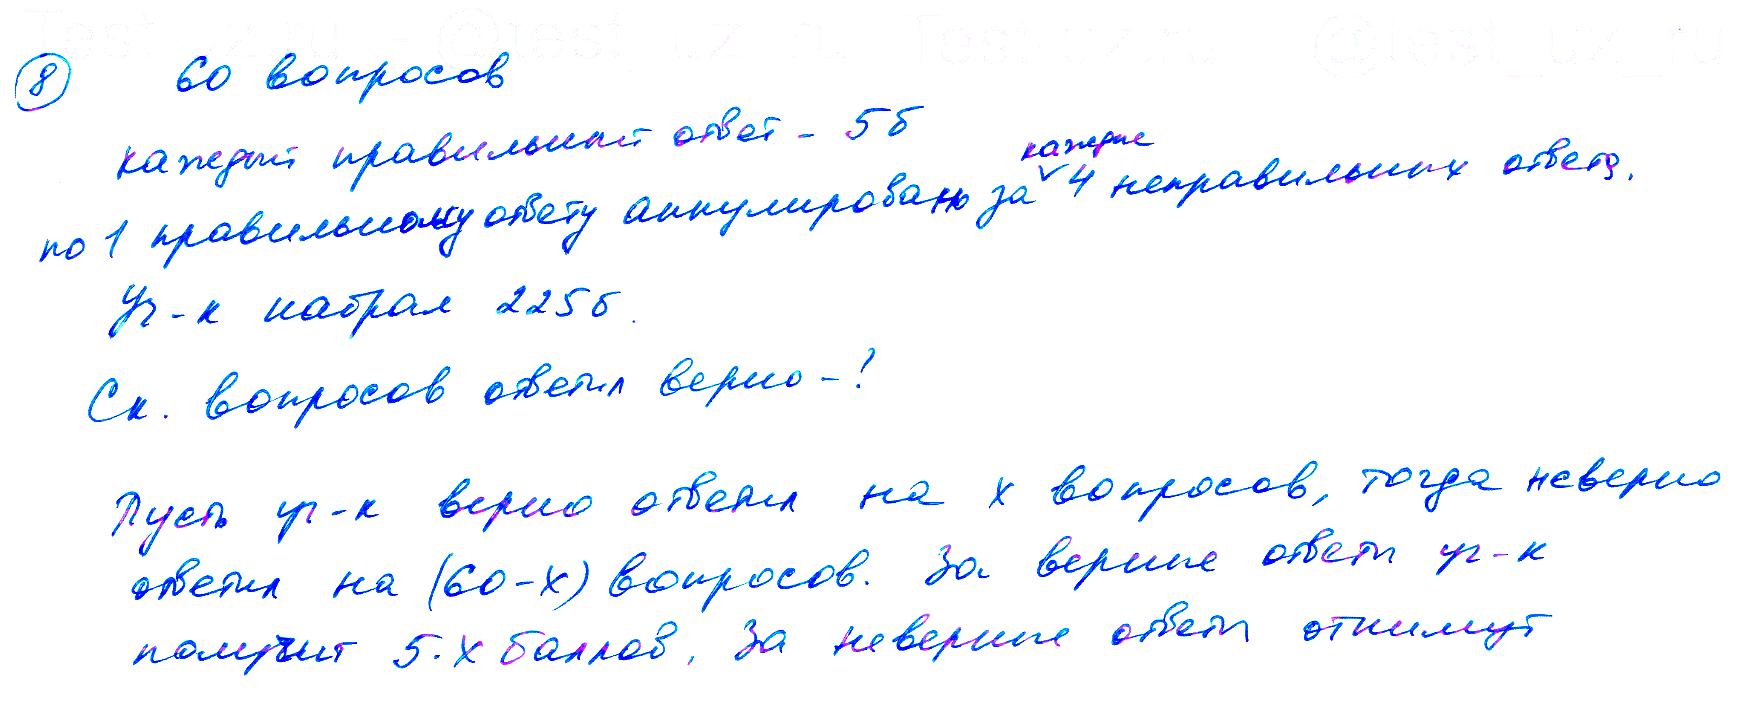 8 60 вопросов
каждый правильный ответ - 5б
каждые
по 1 правильному ответу аннулировано за 4 неправильных ответа.
Уч-к набрал 225б.
Ск. вопросов ответил верно - ?
Пусть уч-к верно ответил на x вопросов, тогда неверно
ответил на (60-x) вопросов. За верные ответы уч-к
получит 5·x баллов. За неверные ответы отнимут